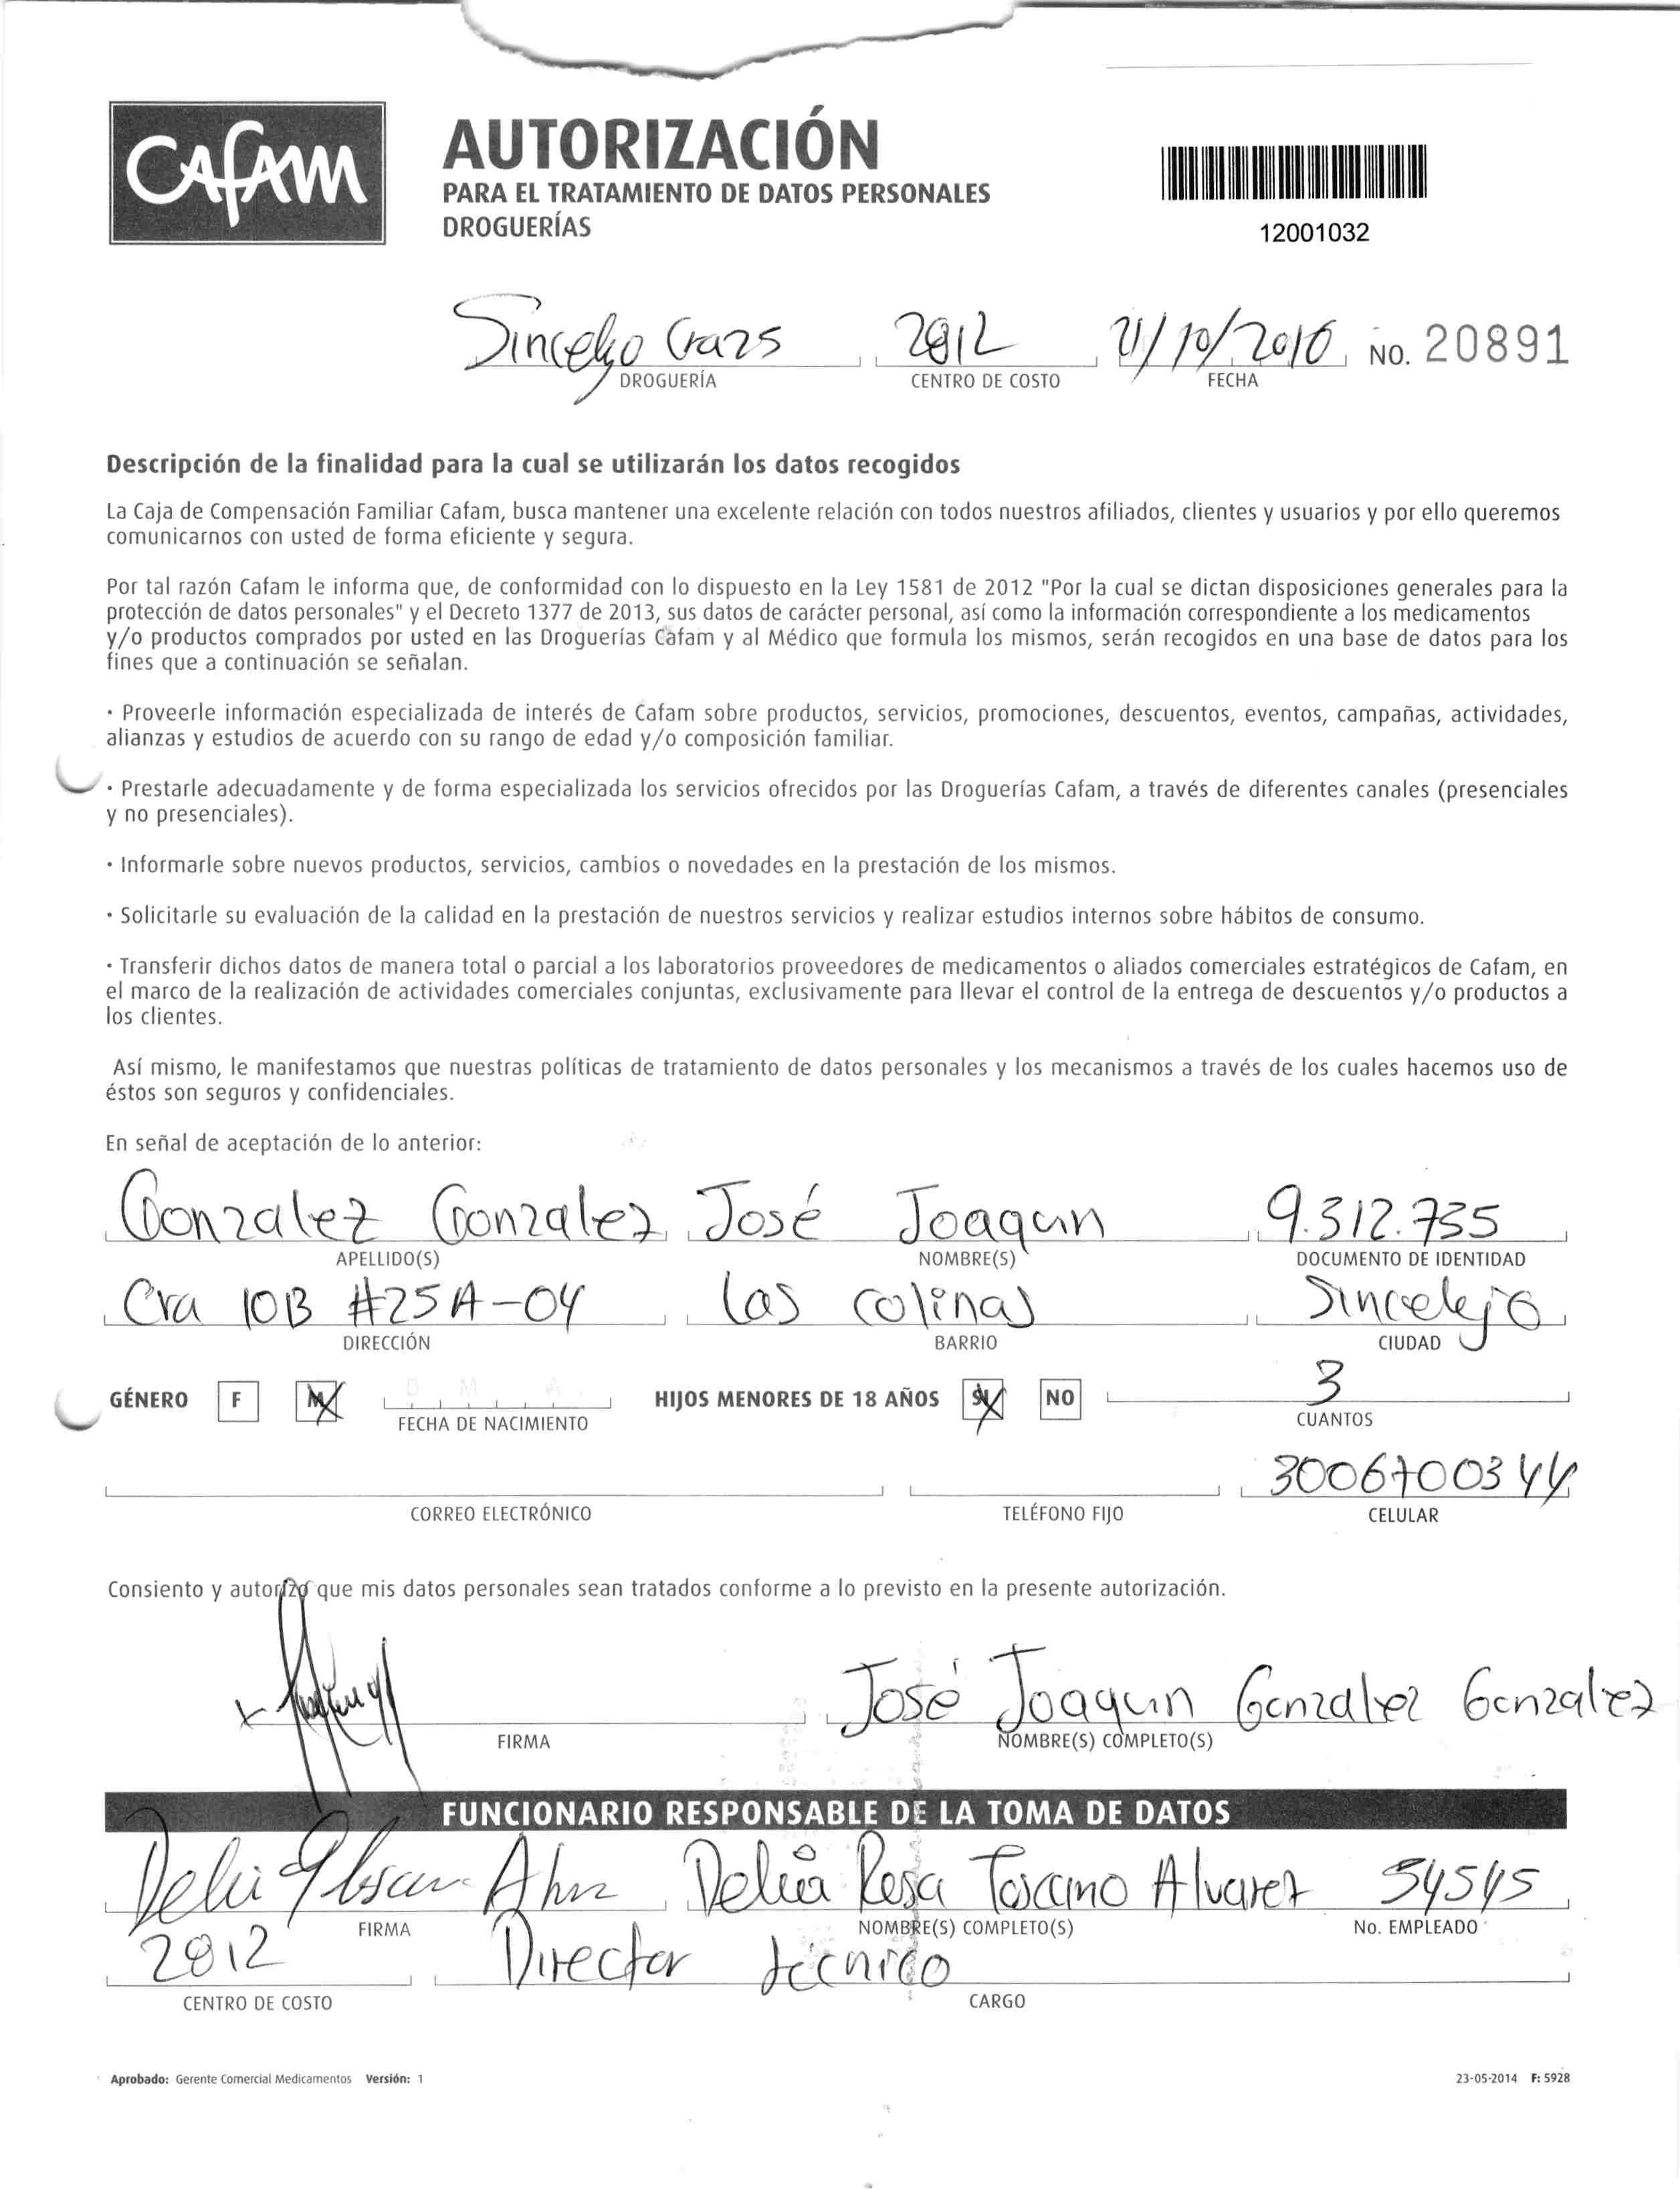 CAFAM
AUTORIZACIÓN
PARA EL TRATAMIENTO DE DATOS PERSONALES
DROGUERÍAS
12001032
Sincelejo Cra25 2012 21/10/2016 No. 20891
DROGUERÍA CENTRO DE COSTO FECHA
Descripción de la finalidad para la cual se utilizarán los datos recogidos
La Caja de Compensación Familiar Cafam, busca mantener una excelente relación con todos nuestros afiliados, clientes y usuarios y por ello queremos
comunicarnos con usted de forma eficiente y segura.
Por tal razón Cafam le informa que, de conformidad con lo dispuesto en la Ley 1581 de 2012 "Por la cual se dictan disposiciones generales para la
protección de datos personales" y el Decreto 1377 de 2013, sus datos de carácter personal, así como la información correspondiente a los medicamentos
y/o productos comprados por usted en las Droguerías Cafam y al Médico que formula los mismos, serán recogidos en una base de datos para los
fines que a continuación se señalan.
· Proveerle información especializada de interés de Cafam sobre productos, servicios, promociones, descuentos, eventos, campañas, actividades,
alianzas y estudios de acuerdo con su rango de edad y/o composición familiar.
· Prestarle adecuadamente y de forma especializada los servicios ofrecidos por las Droguerías Cafam, a través de diferentes canales (presenciales
y no presenciales).
· Informarle sobre nuevos productos, servicios, cambios o novedades en la prestación de los mismos.
· Solicitarle su evaluación de la calidad en la prestación de nuestros servicios y realizar estudios internos sobre hábitos de consumo.
· Transferir dichos datos de manera total o parcial a los laboratorios proveedores de medicamentos o aliados comerciales estratégicos de Cafam, en
el marco de la realización de actividades comerciales conjuntas, exclusivamente para llevar el control de la entrega de descuentos y/o productos a
los clientes.
Así mismo, le manifestamos que nuestras políticas de tratamiento de datos personales y los mecanismos a través de los cuales hacemos uso de
éstos son seguros y confidenciales.
En señal de aceptación de lo anterior:
Gonzalez Gonzalez José Joaquin 9.312.735
APELLIDO(S) NOMBRE(S) DOCUMENTO DE IDENTIDAD
Cra 10B #25A-04 Las colinas Sincelejo
DIRECCIÓN BARRIO CIUDAD
GÉNERO F M D M A HIJOS MENORES DE 18 AÑOS SI NO 3
FECHA DE NACIMIENTO CUANTOS
3006700344
CORREO ELECTRÓNICO TELÉFONO FIJO CELULAR
Consiento y autorizo que mis datos personales sean tratados conforme a lo previsto en la presente autorización.
José Joaquin Gonzalez Gonzalez
FIRMA NOMBRE(S) COMPLETO(S)
FUNCIONARIO RESPONSABLE DE LA TOMA DE DATOS
Delia Rosa Toscano Alvarez 54545
FIRMA NOMBRE(S) COMPLETO(S) No. EMPLEADO
2012 Director técnico
CENTRO DE COSTO CARGO
Aprobado: Gerente Comercial Medicamentos Versión: 1 23-05-2014 F: 5928